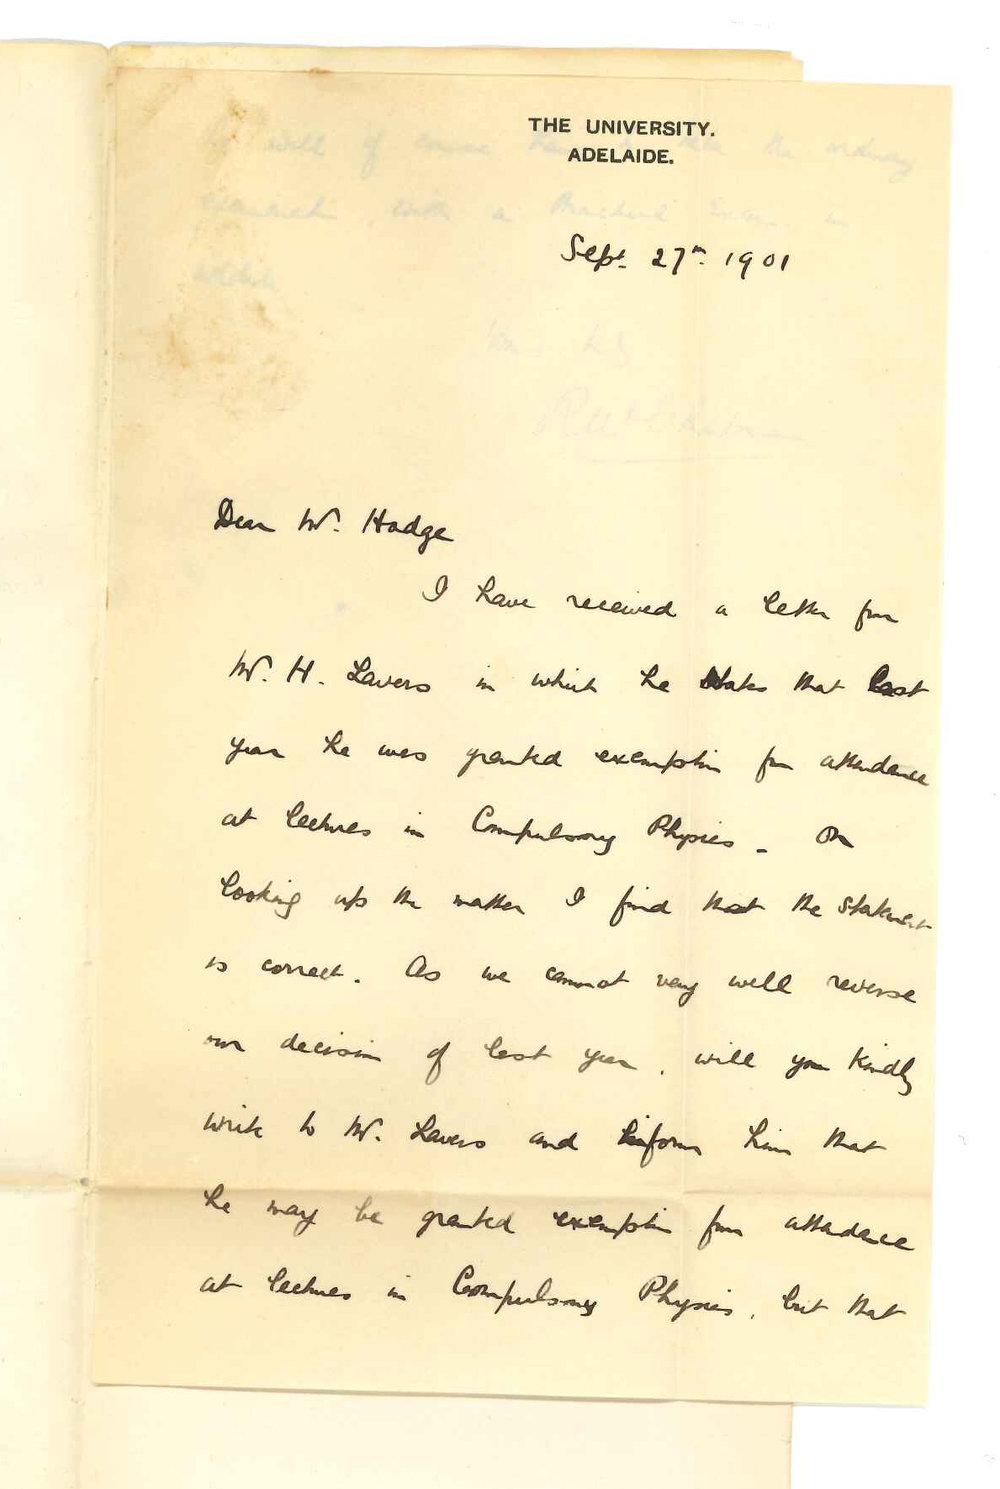 THE UNIVERSITY.
ADELAIDE.
Sept. 27th. 1901
Dear Mr. Hodge
I have received a letter from
Mr. H. Lavers in which he states that last
year he was granted exemption from attendance
at lectures in Compulsory Physics. On
looking up the matter I find that the statement
is correct. As we cannot very well reverse
our decision of last year, will you kindly
write to Mr. Lavers and inform him that
he may be granted exemption from attendance
at lectures in Compulsory Physics, but that